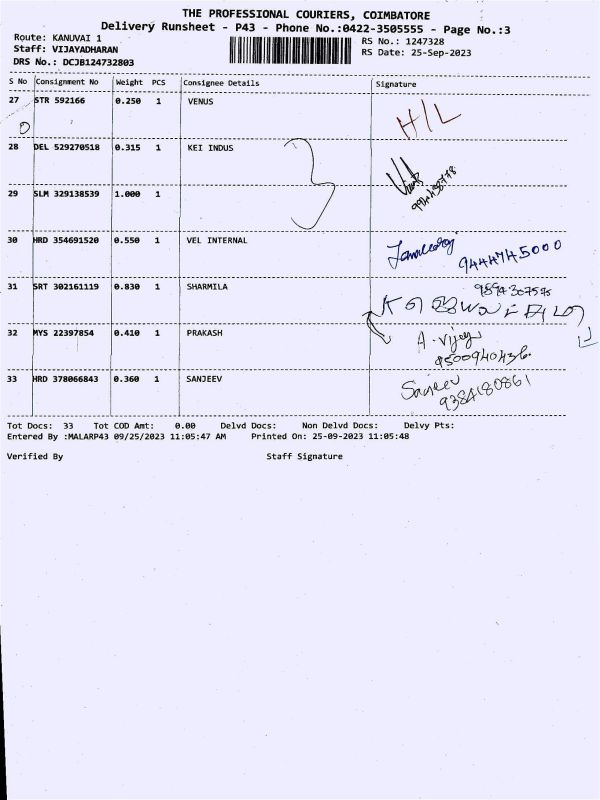 THE PROFESSIONAL COURIERS, COIMBATORE
Delivery Runsheet - P43 - Phone No.:0422-3505555 - Page No.:3
Route: KANUVAI 1
RS No.: 1247328
Staff: VIJAYADHARAN
RS Date: 25-Sep-2023
DRS No.: DCJB124732803
S No Consignment No Weight PCS Consignee Details Signature
27 STR 592166 0.250 1 VENUS H/L
28 DEL 529270518 0.315 1 KEI INDUS
29 SLM 329138539 1.000 1
30 HRD 354691520 0.550 1 VEL INTERNAL 9444745000
31 SRT 302161119 0.830 1 SHARMILA
32 MYS 22397854 0.410 1 PRAKASH A. Vijay
9500940436
33 HRD 378066843 0.360 1 SANJEEV Sanjeev
9384180861
Tot Docs: 33 Tot COD Amt: 0.00 Delvd Docs: Non Delvd Docs: Delvy Pts:
Entered By :MALARP43 09/25/2023 11:05:47 AM Printed On: 25-09-2023 11:05:48
Verified By Staff Signature